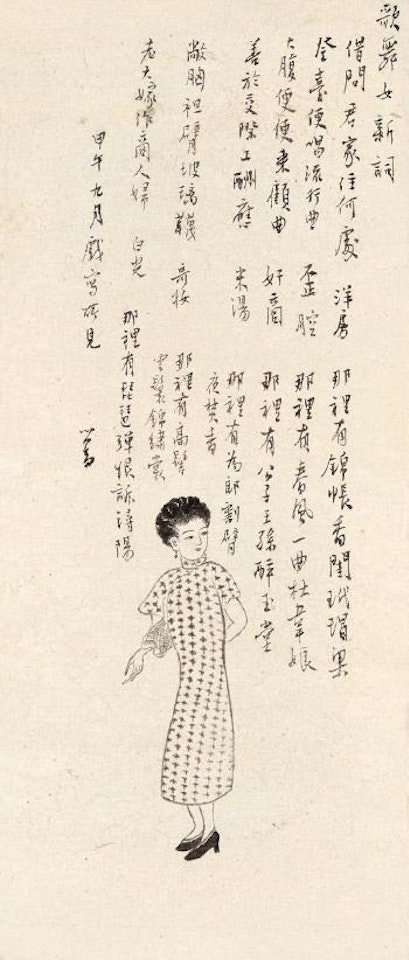 歌舞女新詞
借問君家住何處 洋房 那裡有錦帳香閨玳瑁梁
登臺便唱流行曲 歪腔 那裡有春風一曲杜韋娘
大腹便便來顧曲 奸商 那裡有公子王孫醉玉堂
善於交際工酬應 米湯 那裡有為郎割臂
夜焚香
敞胸袒臂玻璃韈 奇妝 那裡有高髻
雲鬟錦繡裳
老大嫁作商人婦 白光 那裡有琵琶彈恨訴潯陽
甲午九月戲寫所見 心畬